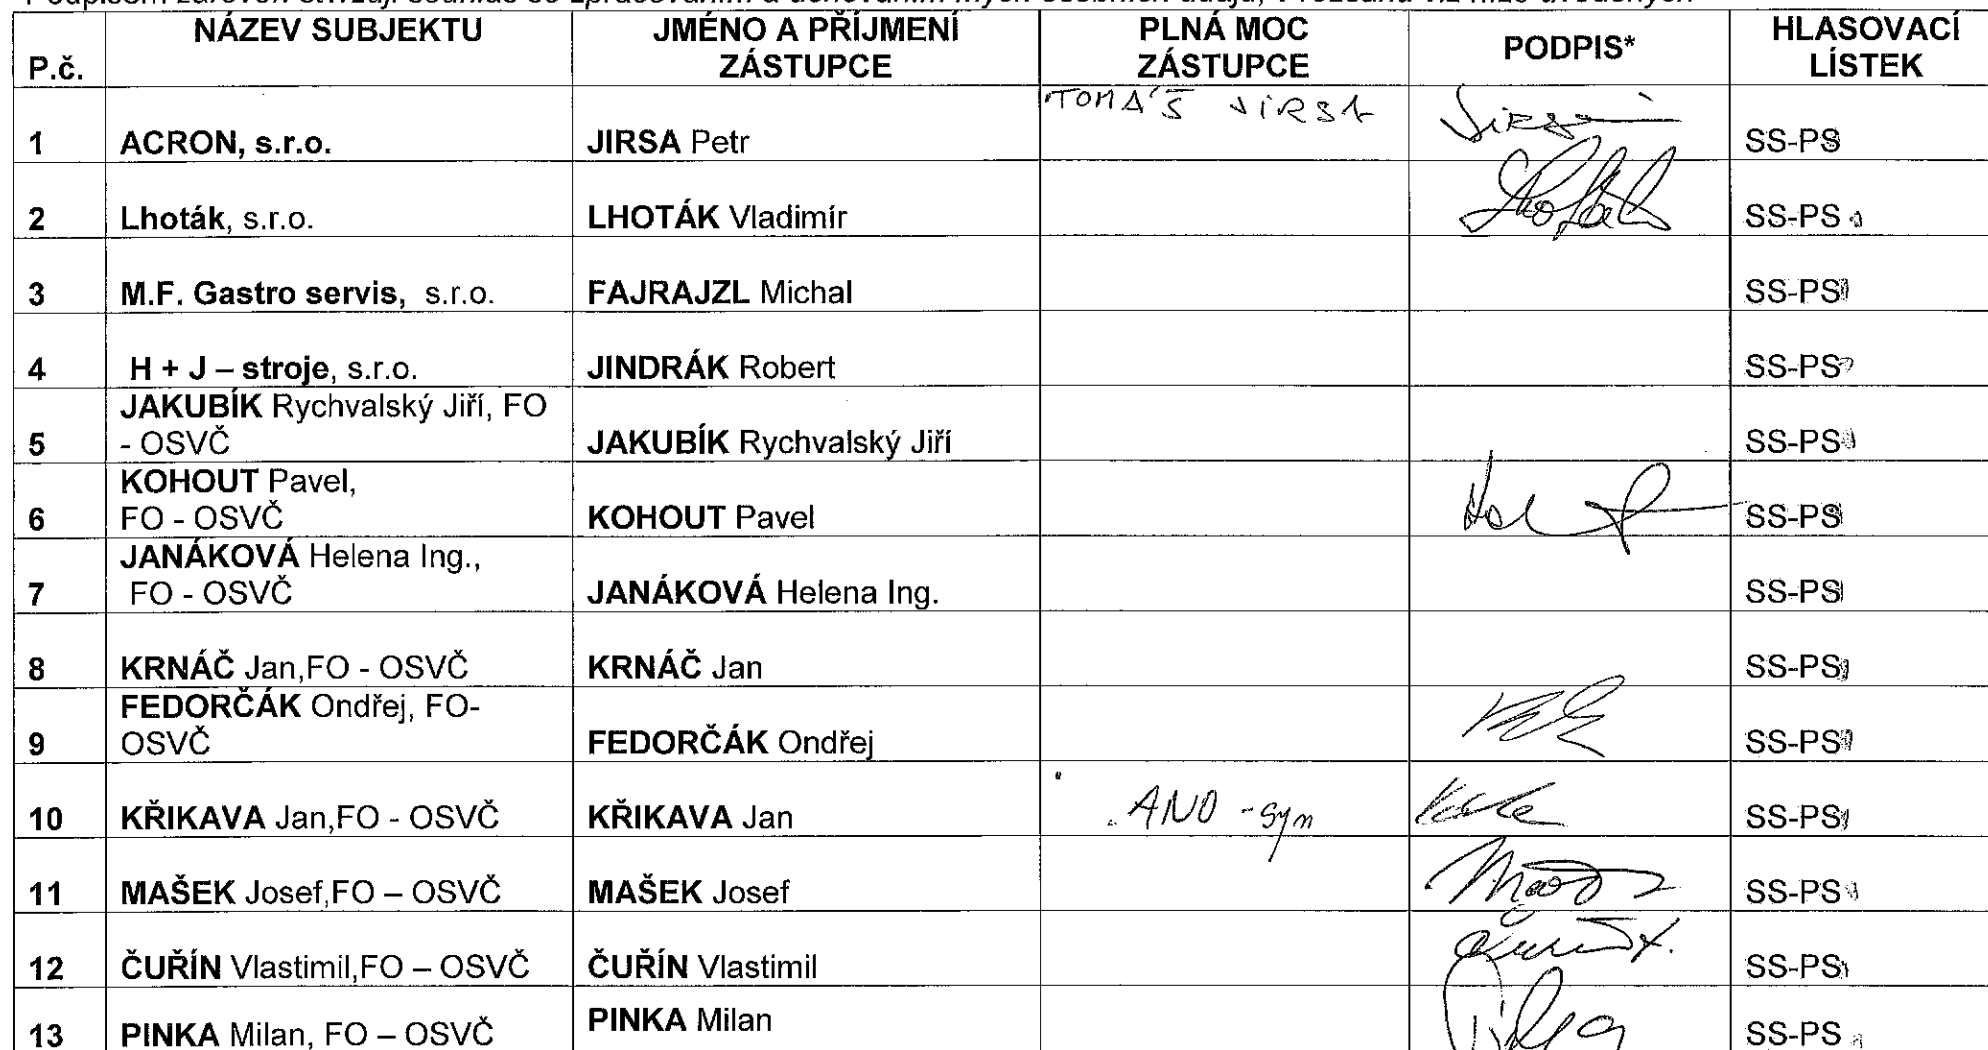 NÁZEV SUBJEKTU JMÉNO A PŘÍJMENÍ PLNÁ MOC HLASOVACÍ
P.č. ZÁSTUPCE ZÁSTUPCE PODPIS* LÍSTEK
TOMÁŠ JIRSA
1 ACRON, s.r.o. JIRSA Petr SS-PS
2 Lhoták, s.r.o. LHOTÁK Vladimír SS-PS
3 M.F. Gastro servis, s.r.o. FAJRAJZL Michal SS-PS
4 H + J – stroje, s.r.o. JINDRÁK Robert SS-PS
JAKUBÍK Rychvalský Jiří, FO
5 - OSVČ JAKUBÍK Rychvalský Jiří SS-PS
KOHOUT Pavel,
6 FO - OSVČ KOHOUT Pavel SS-PS
JANÁKOVÁ Helena Ing.,
7 FO - OSVČ JANÁKOVÁ Helena Ing. SS-PS
8 KRNÁČ Jan,FO - OSVČ KRNÁČ Jan SS-PS
FEDORČÁK Ondřej, FO-
9 OSVČ FEDORČÁK Ondřej SS-PS
10 KŘIKAVA Jan,FO - OSVČ KŘIKAVA Jan ANO - syn SS-PS
11 MAŠEK Josef,FO – OSVČ MAŠEK Josef SS-PS
12 ČUŘÍN Vlastimil,FO – OSVČ ČUŘÍN Vlastimil SS-PS
13 PINKA Milan, FO – OSVČ PINKA Milan SS-PS